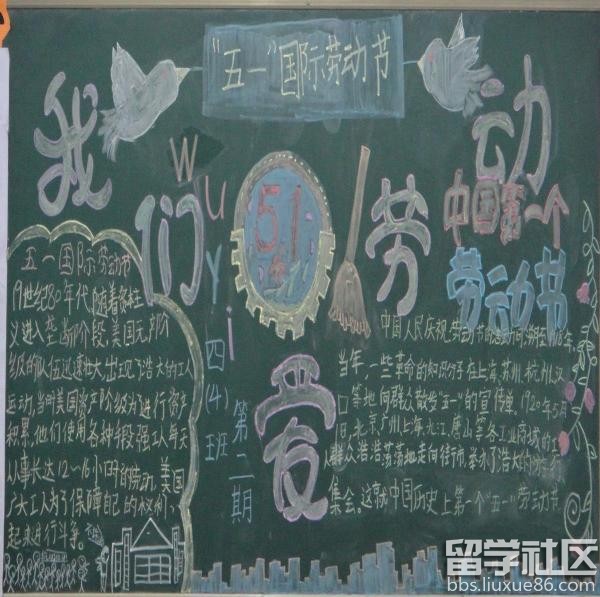 "五一"国际劳动节
我们爱劳动
Wu Yi
51
四(4)班
第二期
五一国际劳动节
19世纪80年代,随着资本主
义进入垄断阶段,美国无产阶
级的队伍迅速壮大,出现了浩大的工人
运动,当时美国资产阶级为了进行资产
积累,他们使用各种手段强工人每天
从事长达12~16小时的劳动,美国
广大工人为了保障自己的权利,
起来进行斗争。
中国第一个
劳动节
中国人民庆祝劳动节的
当年,一些革命的知识分子在上海、苏州、杭州、汉
口等地向群众散发"五一"的宣传单,1920年5月
1日,北京、广州、上海、九江、唐山等各工业城的工
人群众浩浩荡荡地走向街市,举办了浩大的
集会。这就中国历史上第一个"五一"劳动节
留学社区
bbs.liuxue86.com